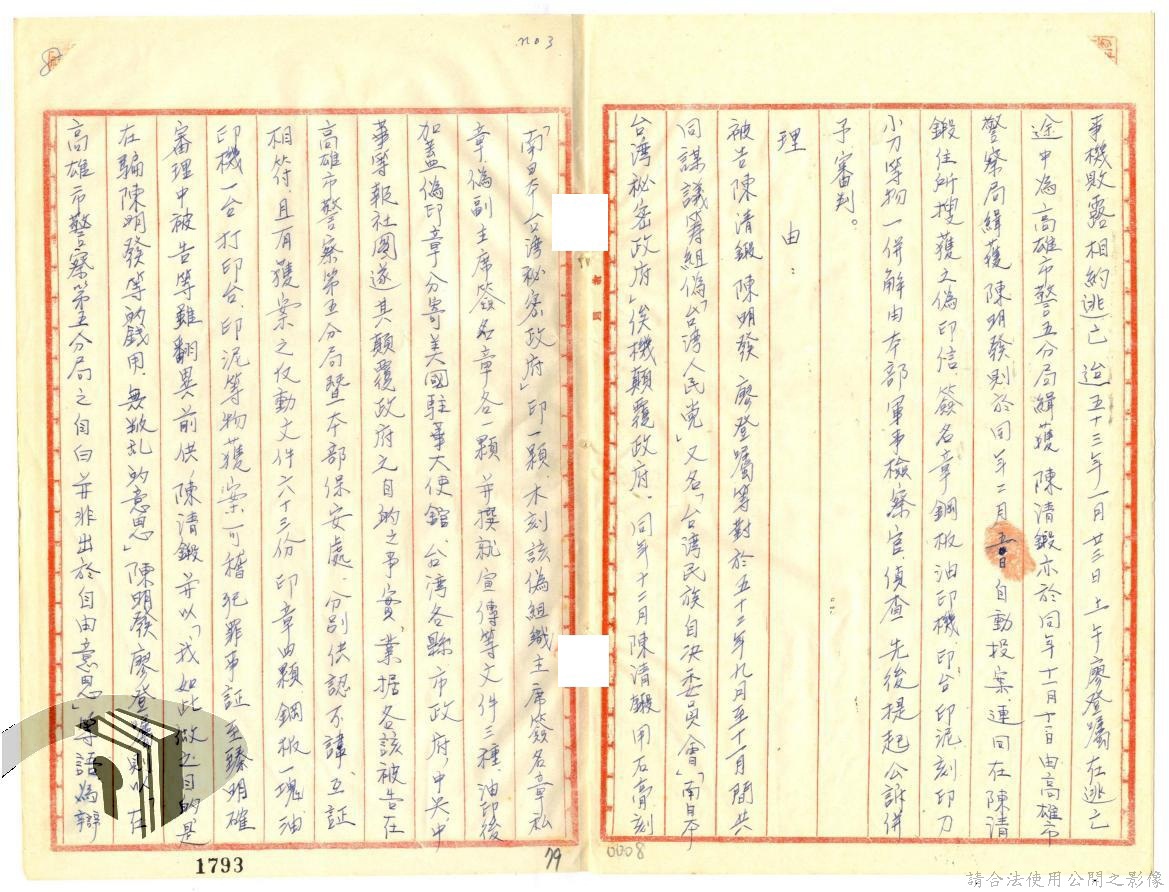 事機敗露相約逃亡迨五十三年一月廿三日上午廖登矚在逃亡
途中為高雄市警五分局緝獲陳清鍛亦於同年十一月十二日由高雄市
警察局緝獲陳明發則於同年二月五日自動投案連同在陳清
鍛住所搜獲之偽印信、簽名章鋼板油印機、印台、印泥刻印刀
小刀等物一併解由本部軍事檢察官偵查先後提起公訴併
予審判。
理由:
被告陳清鍛陳明發 廖登矚等對於五十二年九月至十一月間共
同謀議籌組偽「台湾人民党」又名「台湾民族自決委員會」「南日本
台湾秘密政府」俟機顛覆政府、同年十二月陳清鍛用石膏刻
「南日本台湾秘密政府」印一顆、木刻該偽組織主席簽名章私
章偽副主席簽名章各一顆 并撰就宣傳等文件三種、油印後
加蓋偽印章分寄美國駐華大使館、台湾各縣、市政府、中央、中
華等報社圖遂其顛覆政府之目的之事實、業据各該被告在
高雄市警察第五分局暨本部保安處、分別供認不諱、互証
相符、且有獲案之反動文件六十三份 印章四顆、鋼板一塊油
印機一台打印台、印泥等物獲案可稽犯罪事証至臻明確
審理中被告等雖翻異前供、陳清鍛并以「我如此做之目的是
在騙陳明發等的錢用、無叛乱的意思」陳明發廖登矚則以「在
高雄市警察第五分局之自白并非出於自由意思」等語為辯
no 3
1793
79
0008
請合法使用公開之影像